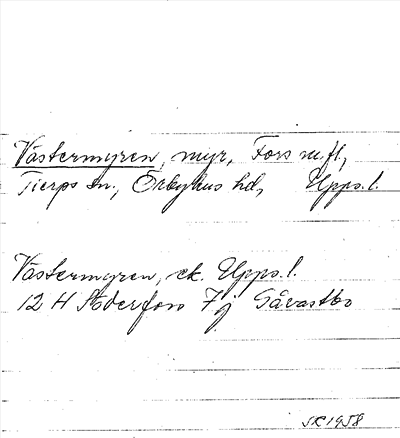 Västermyren, myr, Fors m.fl,
Tierps sn., Örbyhus hd, Upps.l.
Västermyren, ek. Upps.l.
12 H Söderfors 7 j Gåvastbo
SK 1958